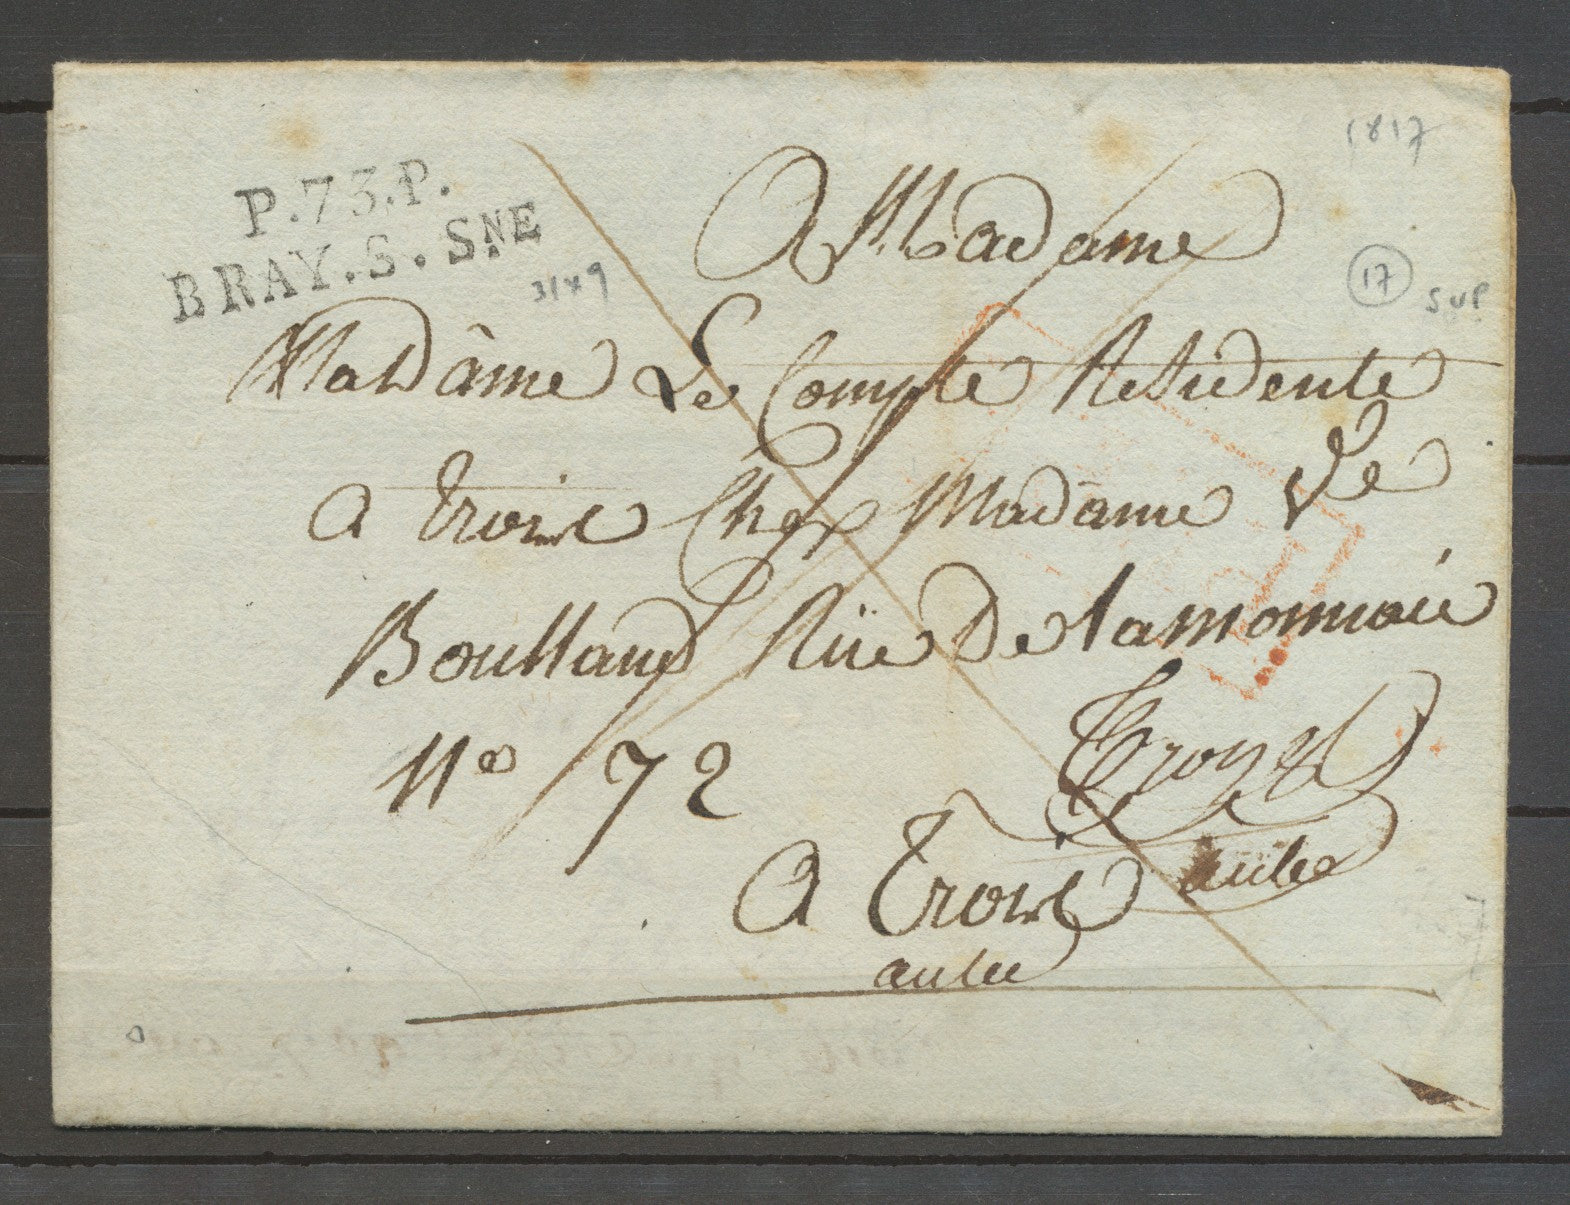 1817
P.73.P.
BRAY.S.SNE
31x9
17
SUP
A Madame
Madâme Le Compte Residente
a troise Chex Madâme Ve
Boulland Rüe De lamonnoie
No 72
Troyes
aube
A Troise
aube